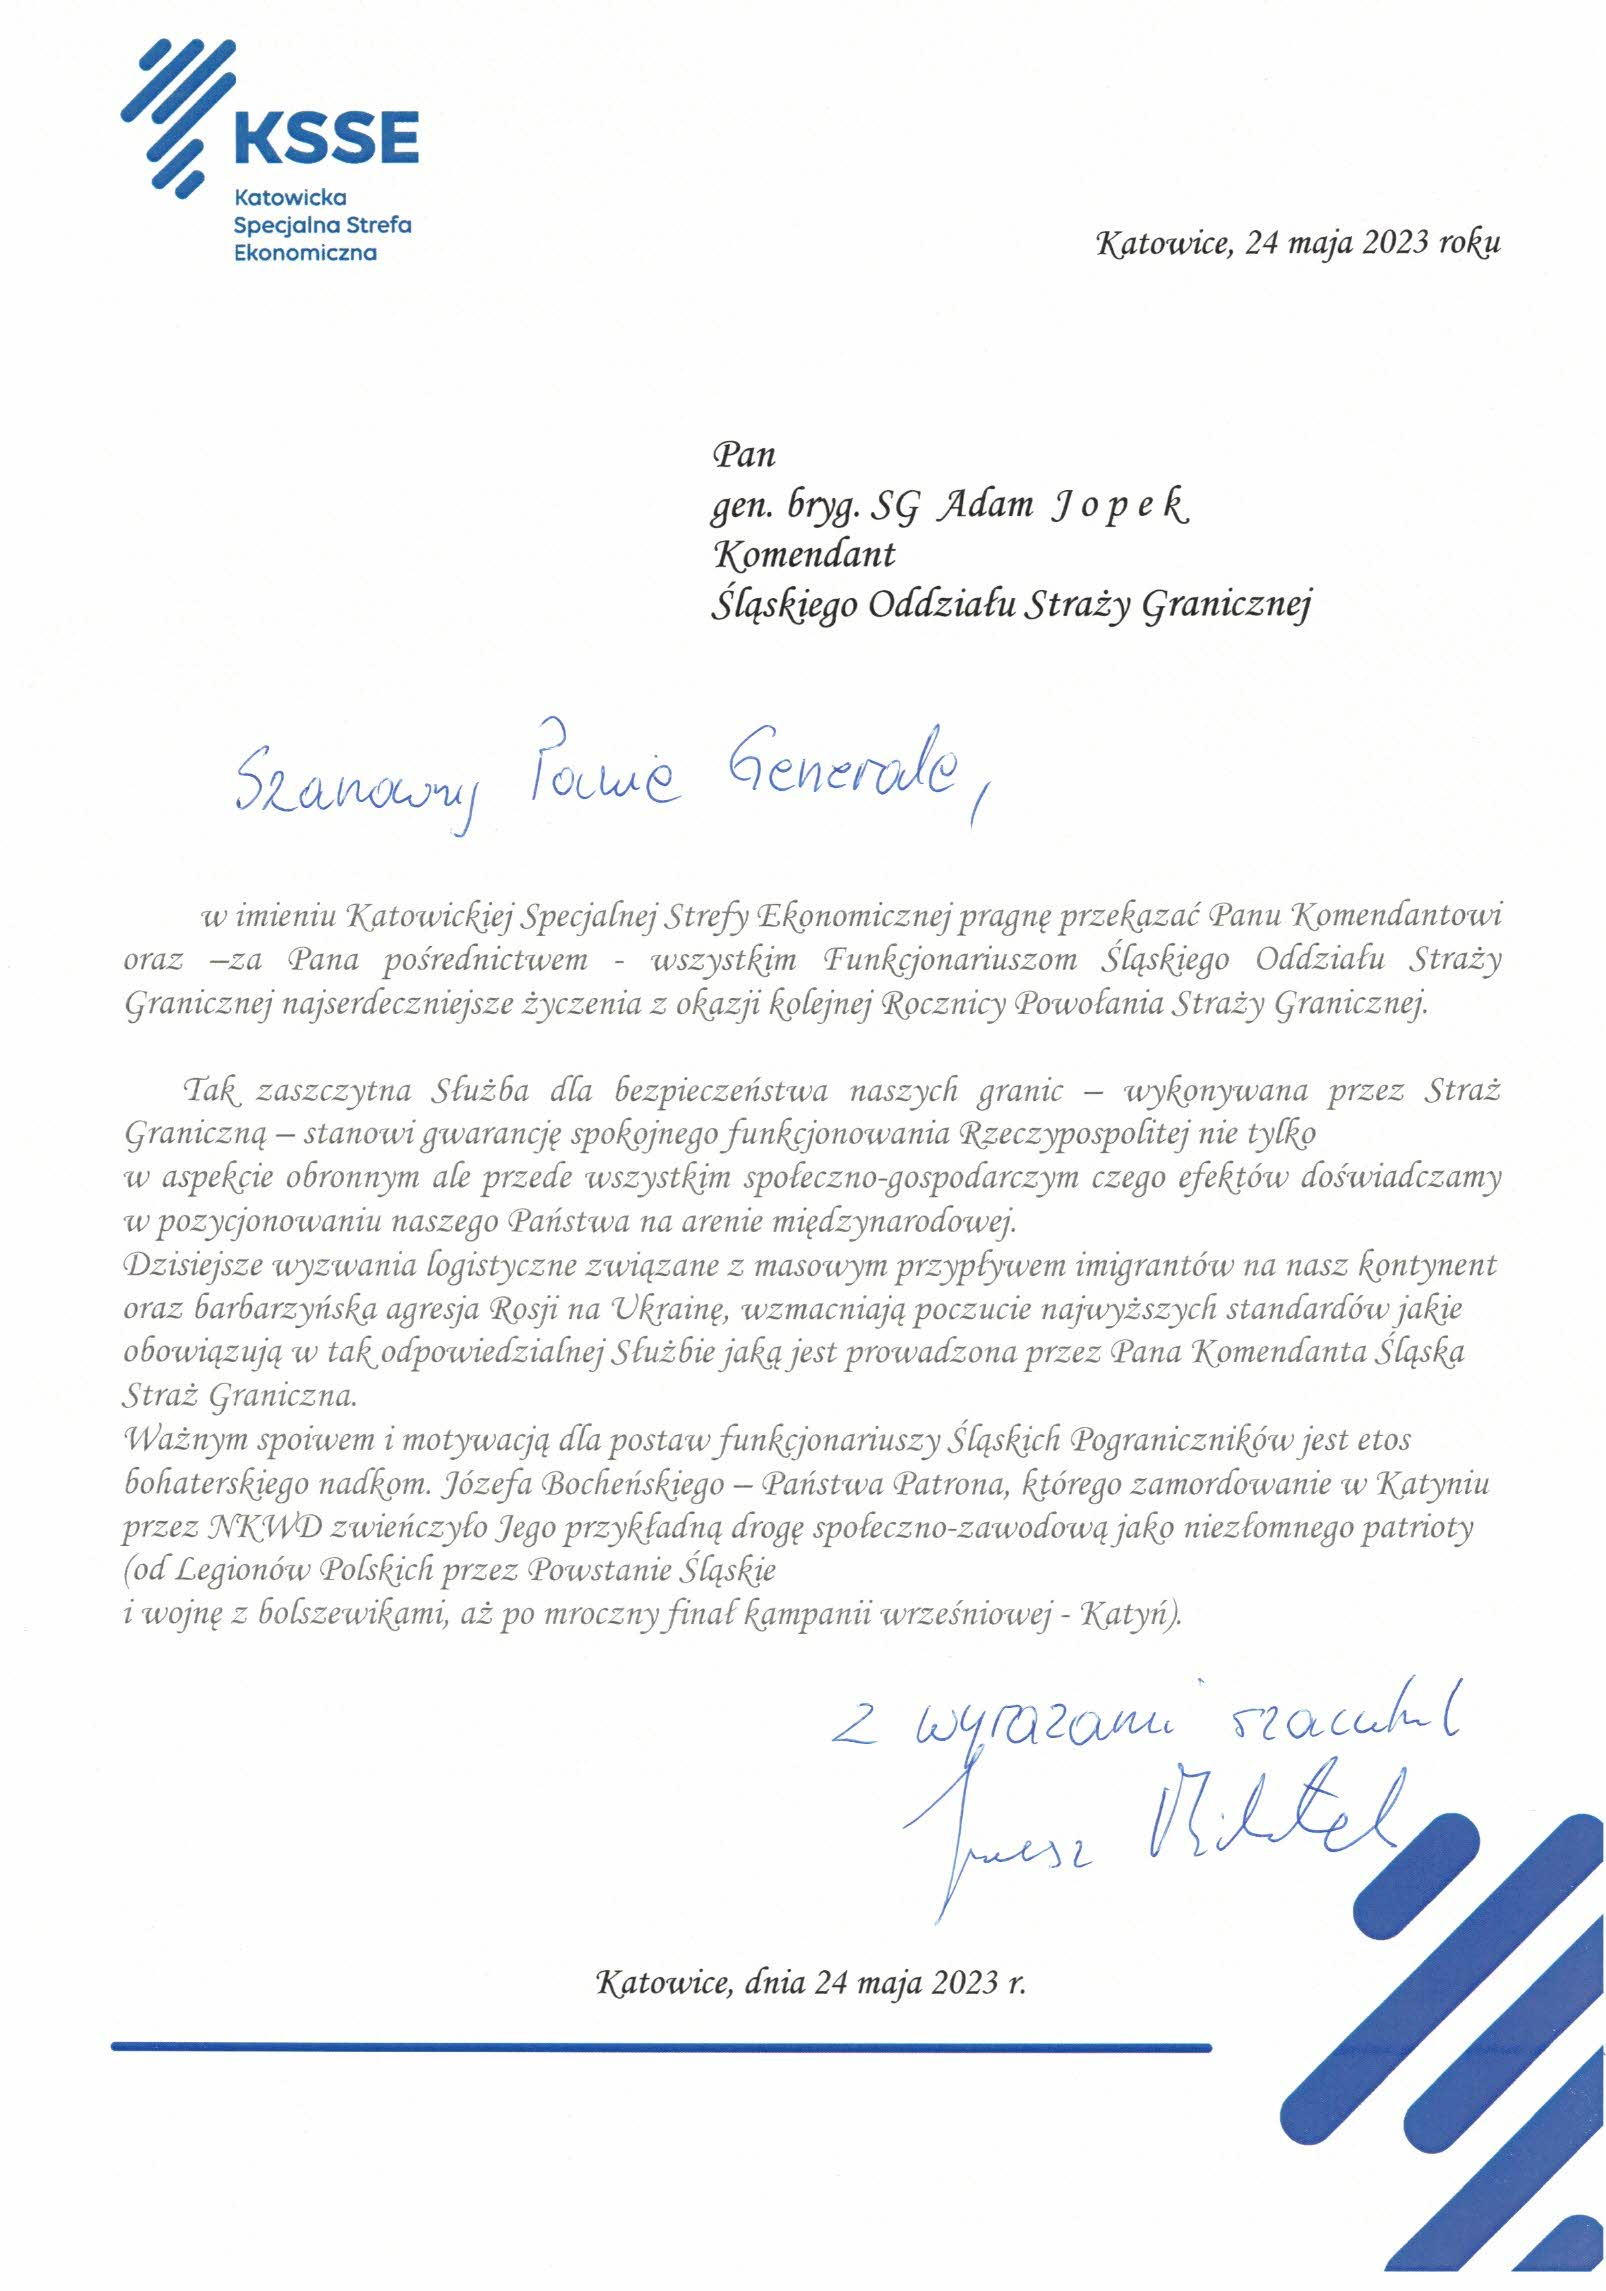 KSSE
Katowicka
Specjalna Strefa
Ekonomiczna
Katowice, 24 maja 2023 roku
Pan
gen. bryg. SG Adam J o p e k
Komendant
Śląskiego Oddziału Straży Granicznej
Szanowny Panie Generale,
w imieniu Katowickiej Specjalnej Strefy Ekonomicznej pragnę przekazać Panu Komendantowi
oraz –za Pana pośrednictwem - wszystkim Funkcjonariuszom Śląskiego Oddziału Straży
Granicznej najserdeczniejsze życzenia z okazji kolejnej Rocznicy Powołania Straży Granicznej.
Tak zaszczytna Służba dla bezpieczeństwa naszych granic – wykonywana przez Straż
Graniczną – stanowi gwarancję spokojnego funkcjonowania Rzeczypospolitej nie tylko
w aspekcie obronnym ale przede wszystkim społeczno-gospodarczym czego efektów doświadczamy
w pozycjonowaniu naszego Państwa na arenie międzynarodowej.
Dzisiejsze wyzwania logistyczne związane z masowym przypływem imigrantów na nasz kontynent
oraz barbarzyńska agresja Rosji na Ukrainę, wzmacniają poczucie najwyższych standardów jakie
obowiązują w tak odpowiedzialnej Służbie jaką jest prowadzona przez Pana Komendanta Śląska
Straż Graniczna.
Ważnym spoiwem i motywacją dla postaw funkcjonariuszy Śląskich Pograniczników jest etos
bohaterskiego nadkom. Józefa Bocheńskiego – Państwa Patrona, którego zamordowanie w Katyniu
przez NKWD zwieńczyło Jego przykładną drogę społeczno-zawodową jako niezłomnego patrioty
(od Legionów Polskich przez Powstanie Śląskie
i wojnę z bolszewikami, aż po mroczny finał kampanii wrześniowej - Katyń).
Z wyrazami szacunku
Katowice, dnia 24 maja 2023 r.